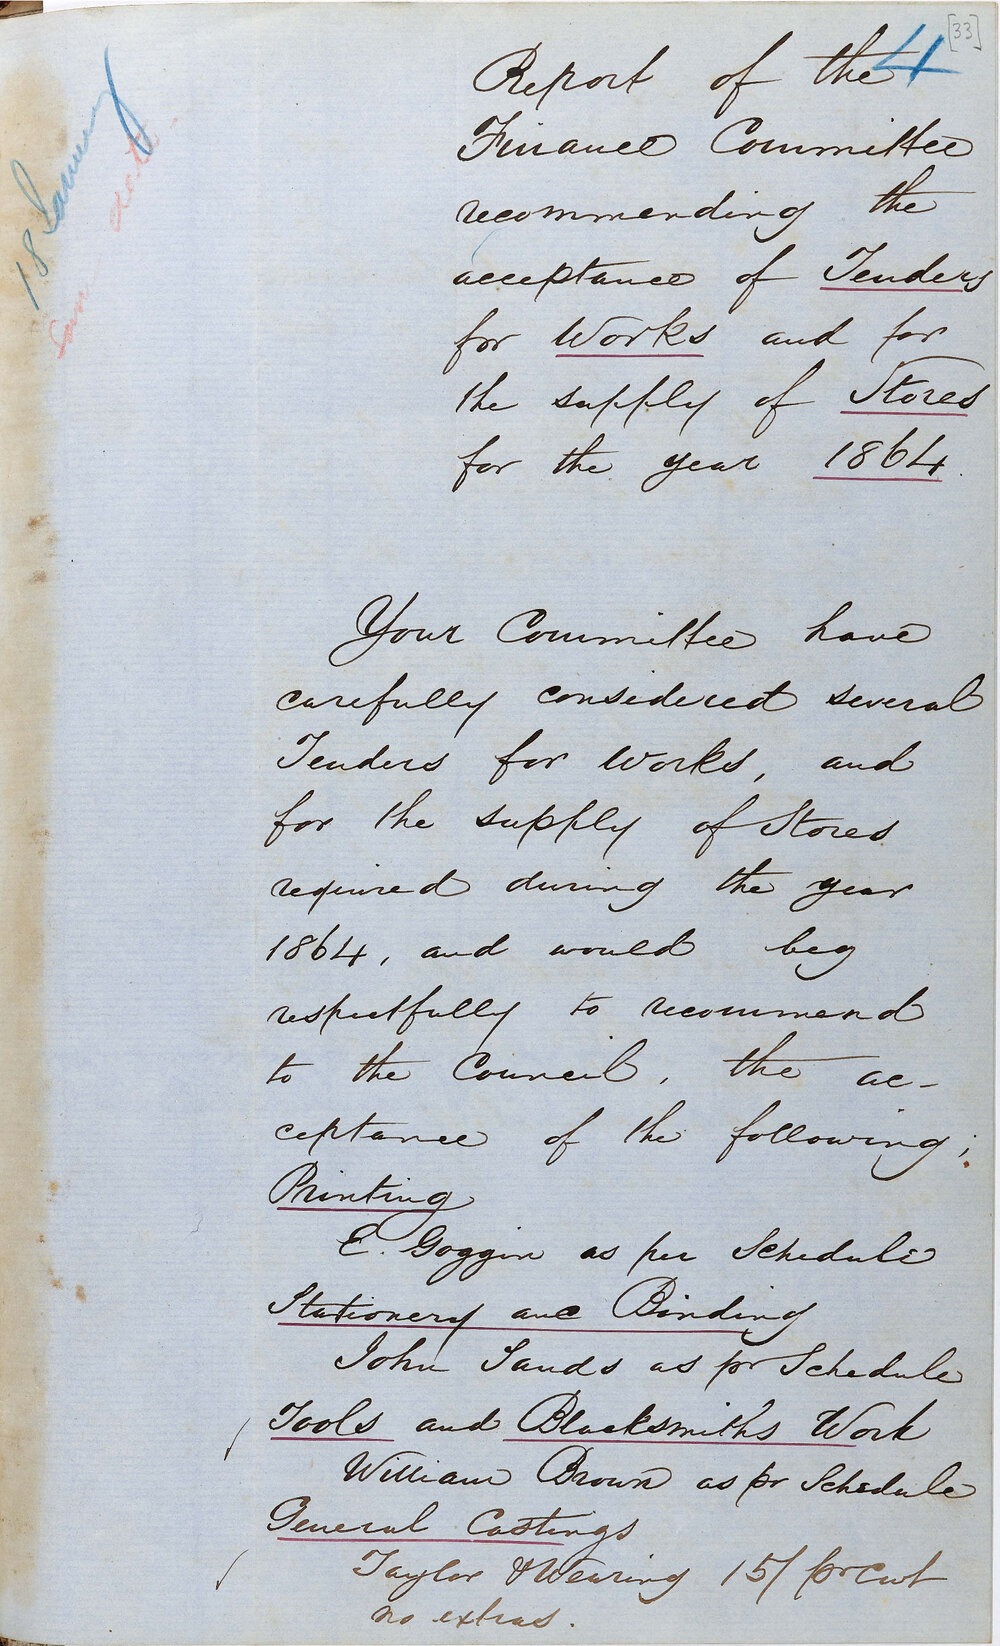 [33]
4
Report of the
Finance Committee
recommending the
acceptance of Tenders
for Works and for
the supply of Stores
for the year 1864.
18 January
Same date
Your Committee have
carefully considered several
Tenders for Works, and
for the supply of Stores
required during the year
1864, and would beg
respectfully to recommend
to the Council, the ac-
ceptance of the following;
Printing
E. Goggin as per Schedule
Stationery and Binding
John Sands as pr Schedule
Tools and Blacksmiths Work
William Brown as pr Schedule
General Castings
Taylor & Wearing 15/ pr cwt
no extras.